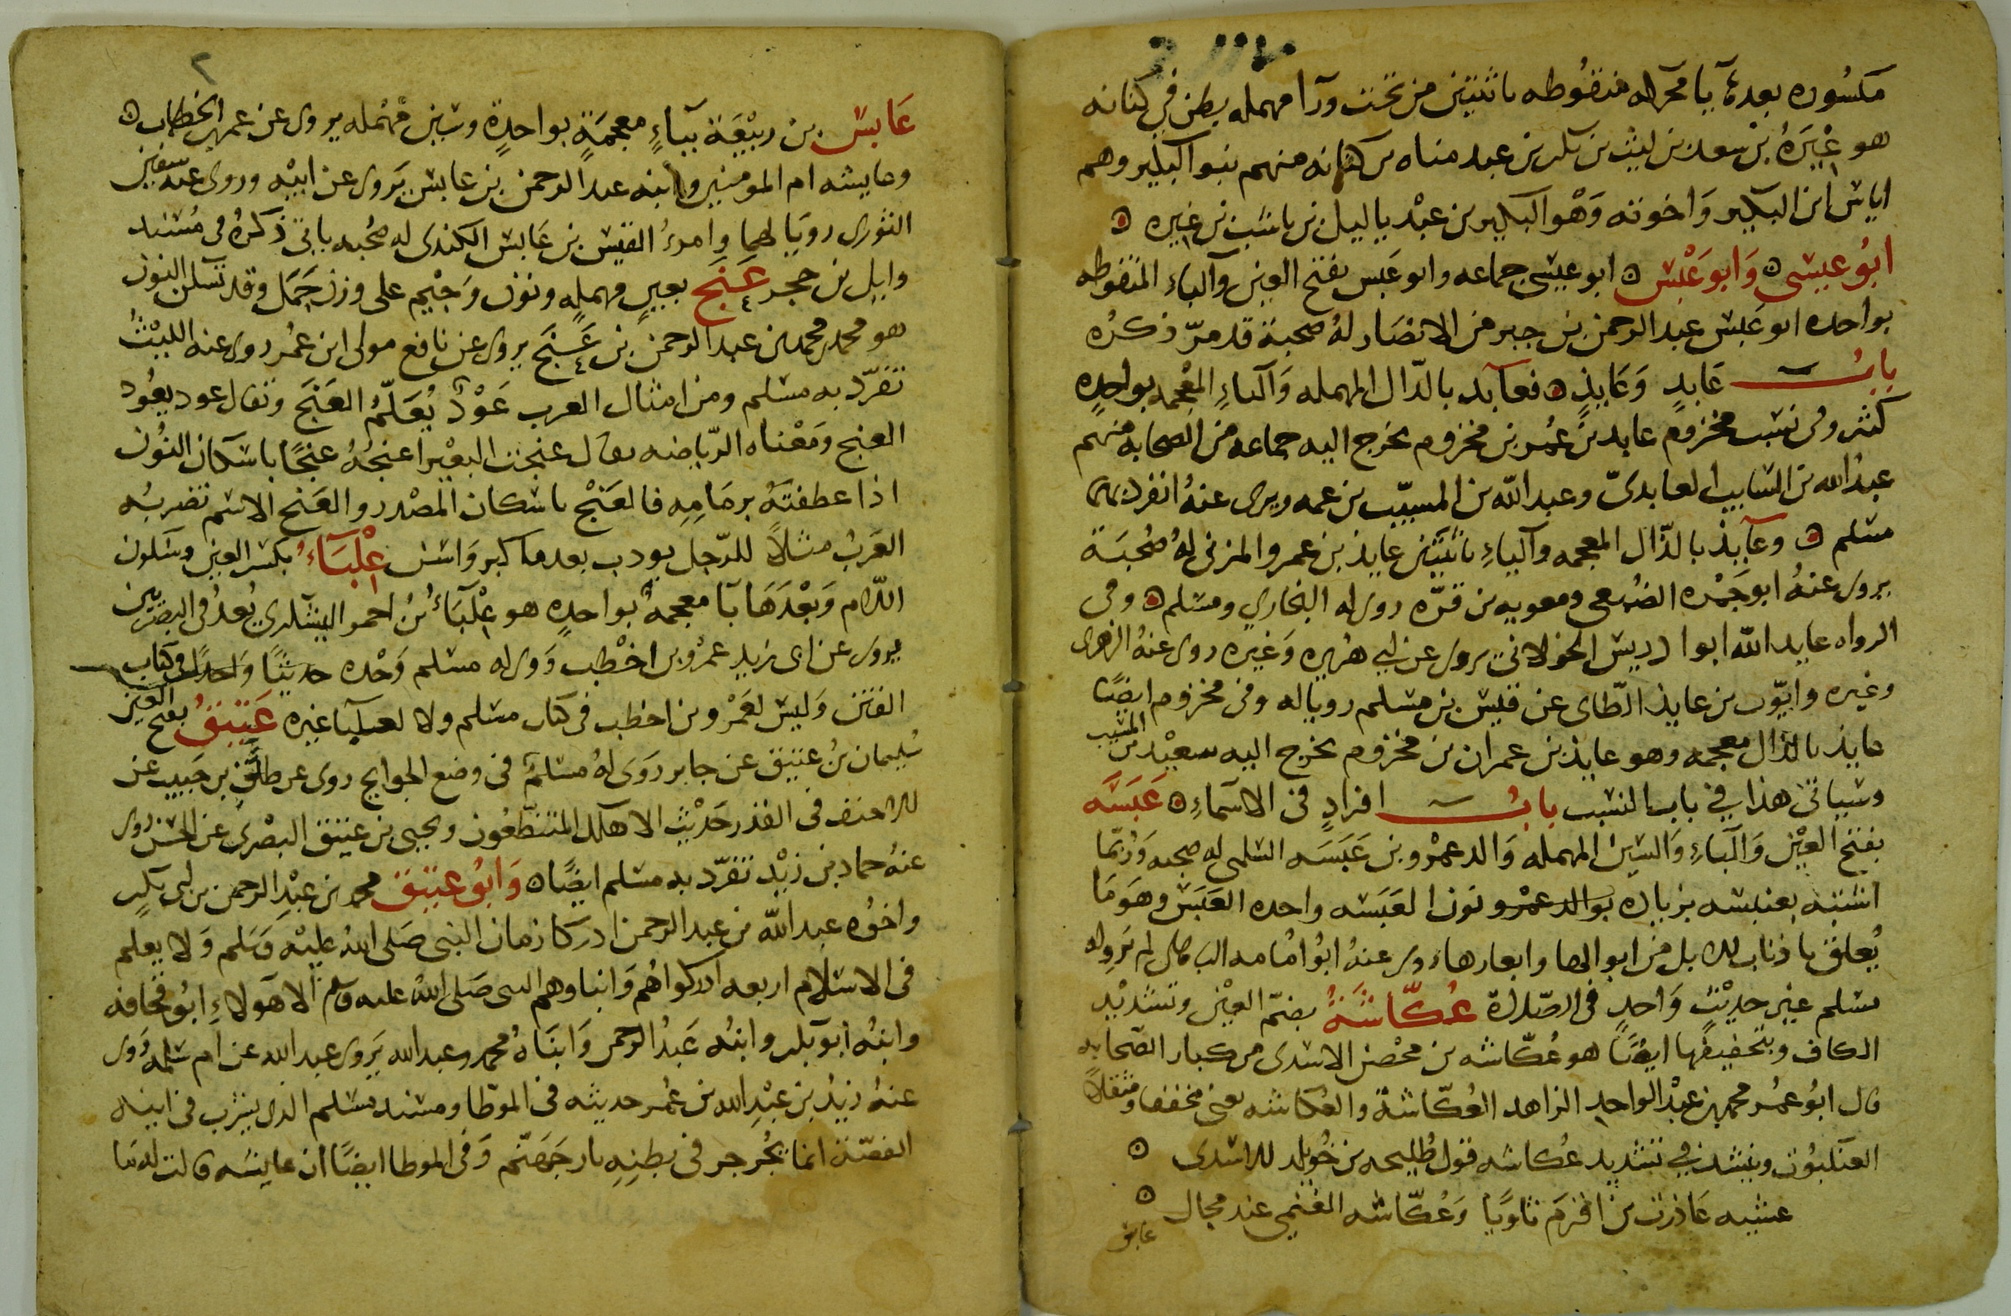 مكسوره بعدها يا محركه منقوطه باثنتين من تحت ورآ مهمله بطن في كنانه
هو غِيَرَةُ بن سعد بن ليث بن بكر بن عبد مناه بن كنانه منهم بنوا البكير وهم
اياس ابن البكير واخوته وَهْو البكير بن عبْد ياليل بن ناشب بن غيره
ابُو عيسى وَابو عَبْس ابو عيسى جماعه وابو عَبس بفتح العين والباء المنقوطه
بواحده ابو عَبس عبد الرحمن بن جبر من الانصَار لهُ صحبة قد مرّ ذكرُه
بابُ عَابدٍ وَعَايذٍ فعابد بالدّال المهمله وَالباءِ المعْجمه بواحدِه
كثير وفي نسب مخزوم عابد بن عُمر بن مخزوم يخرج اليه جماعه من الصحابه منهم
عبدُ الله بن السّايب العابديّ وعبد الله بن المسيّب بن عمه ويروى عنهُ انفرد بهما
مسلم وعآيذ بالذّال المعجمه والياءِ باثنتين عايذ بن عمرو المزني لهُ صُحبَة
يروى عنهُ ابو جَمْره الضُبعي ومعويه بن قرّه روى له البخاري ومسلم وفي
الرواه عايد الله ابوا ادريس الخولاني يروى عن ابي هُريره وَغيَره روى عنهُ الزهرى
وغيره وايوّب بن عايذ الطّاى عن قيس بن مسلم رويا له وفى مخزوم ايضًا
عايذ بالذال معجمه وهو عايذ بن عمران بن مخزوم يخرج اليه سعيْد بن المسيب
وسياتى هذا في باب النسب بابُ افرادٍ فى الاسَماءِ عَبَسَه
بفتح العيْن وَالبَاءِ وَالسِين المهمله وَالد عمْرو بن عَبَسَه السلمى له صحبه وَرُبّما
اشتبه بعنبسه بزياده نون والد عمْرو العَبَسَه واحده العَبَس وهوَ مَا
يُعلق باذناب الابل من ابوالها وابعارها روى عنهُ ابُو امُامه الباهلى لم يَرو له
مسلم غير حديْثٍ وَاحدٍ فى الصّلاة عُكّاشَةُ بضمّ العيْن وتشديْد
الكاف وبتخفيفها ايضًا هو عُكّاشه بن محْصَن الاسدى من كبار الصّحابه
قال ابُو عُمر محمد بن عبْد الواحد الزاهد العُكّاشةُ والعُكَاشه يعنى مخففا ومثقلاً
العنكبُوت وينشد في تشديد عُكاشه قول طُليحه بن خُويلد الاسَدى
عشيه غَادرت بن اقرَم ثاوًيا وَعُكّاشه الغنمِي عند مجال
عابس
٢
عَابس بن ربيْعَة ببَاءٍ معجمَةٍ بواحدِةٍ وسِين مُهْمله يروى عن عمر بن الخطاب
وعايشه ام المومنين وابنه عبد الرحمن بن عابس يَروى عن ابيْه وروى عنه سفين
الثورى رويَا لهما وامرءُ القيس بن عَابس الكندى له صُحبه ياتى ذكرهُ فى مُسْند
وايل بن حجر عَنَج بعينٍ مهملهٍ ونون وَجيْمٍ على وزن جَمَل وقد تسكن النون
هو محمد بن محمد بن عبد الرحمن بن عَنَج يروى عن نافع مولى ابن عُمر روى عنه الليْثُ
تفرّد به مسلم ومن امثال العرب عَوْدٌ يُعَلَّمُ العَنَجَ وتقال عود يعُود
العنج ومَعْناه الرّياضه يقال عنجت البعيْر اعنجهُ عنجًا باسكان النُون
اذا عطفتَهُ بزمَامِه فالعَنْج باسْكان المصْدر والعَنَج الاسْم تضربُه
العَربُ مثلاً للرّجل يودب بعدما كبر وَاسَن عِلْبَآءُ بكسر العين وسَكون
اللّام وَبَعْدَهَا بَآ معجمهٌ بواحدِه هو عِلْبَآءُ بنُ احمر اليشكرى يُعدُ فى البصْريين
يروى عن ابى زيدٍ عمرْو بن اخْطب وَروى له مسلم وَحْده حديثًا وَاحدًا فى كتاب
الفتن وَليس لعَمْرو بن اخطب فى كتاب مسلم ولا لعلبآء غيره عَتيقُ بفتح العين
سُليمان بنُ عتيق عن جابر رَوَى لهُ مُسْلمٌ فى وضع الجوايح روى عن طلْق بن حَبيب عن
الاحنف فى القدر حَديْث الا هلك المتنطّعُون ويحيى بن عتيق البصْرى عن الحسن روى
عنهُ حماد بن زيْد تفرّد به مسلم ايضًا وَابُو عَتيق محمد بن عبْد الرحمن بن ابى بَكرٍ
واخوُه عبد الله بن عبد الرحمن ادركا زمان النبى صَلى اللهُ عليْه وَسَلم وَلا يعلم
فى الاسْلام اربعه ادركوا هُم وَابناوهم النبى صَلى اللهُ عليه وسلم الا هَولاءِ ابُو قحافه
وابنُه ابو بكر وابنُه عَبدُ الرحمن وَابنَاهُ محمد وعبد الله يَروى عبد الله عن ام سَلمه رَوى
عنهُ زيْدُ بن عبْد الله بن عُمر حديثه فى الموطّا ومسْند مسْلم الذى يشرَب فى انيه
الفضّة انما يُجرجر فى بطنِه نار جَهَنّم وَفى الموطا ايضًا ان عايشه قالت له مَا